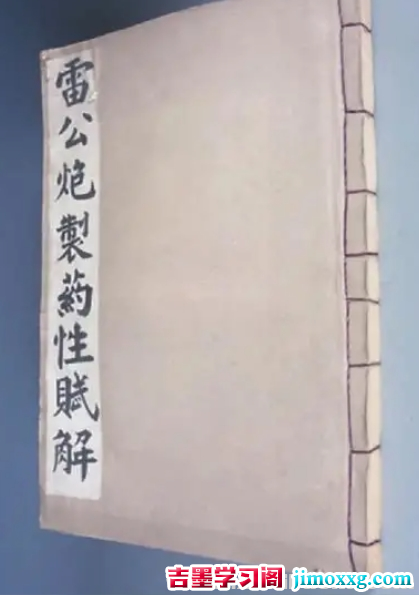 雷公炮製葯性賦解
吉墨学习阁 jimoxxg.com